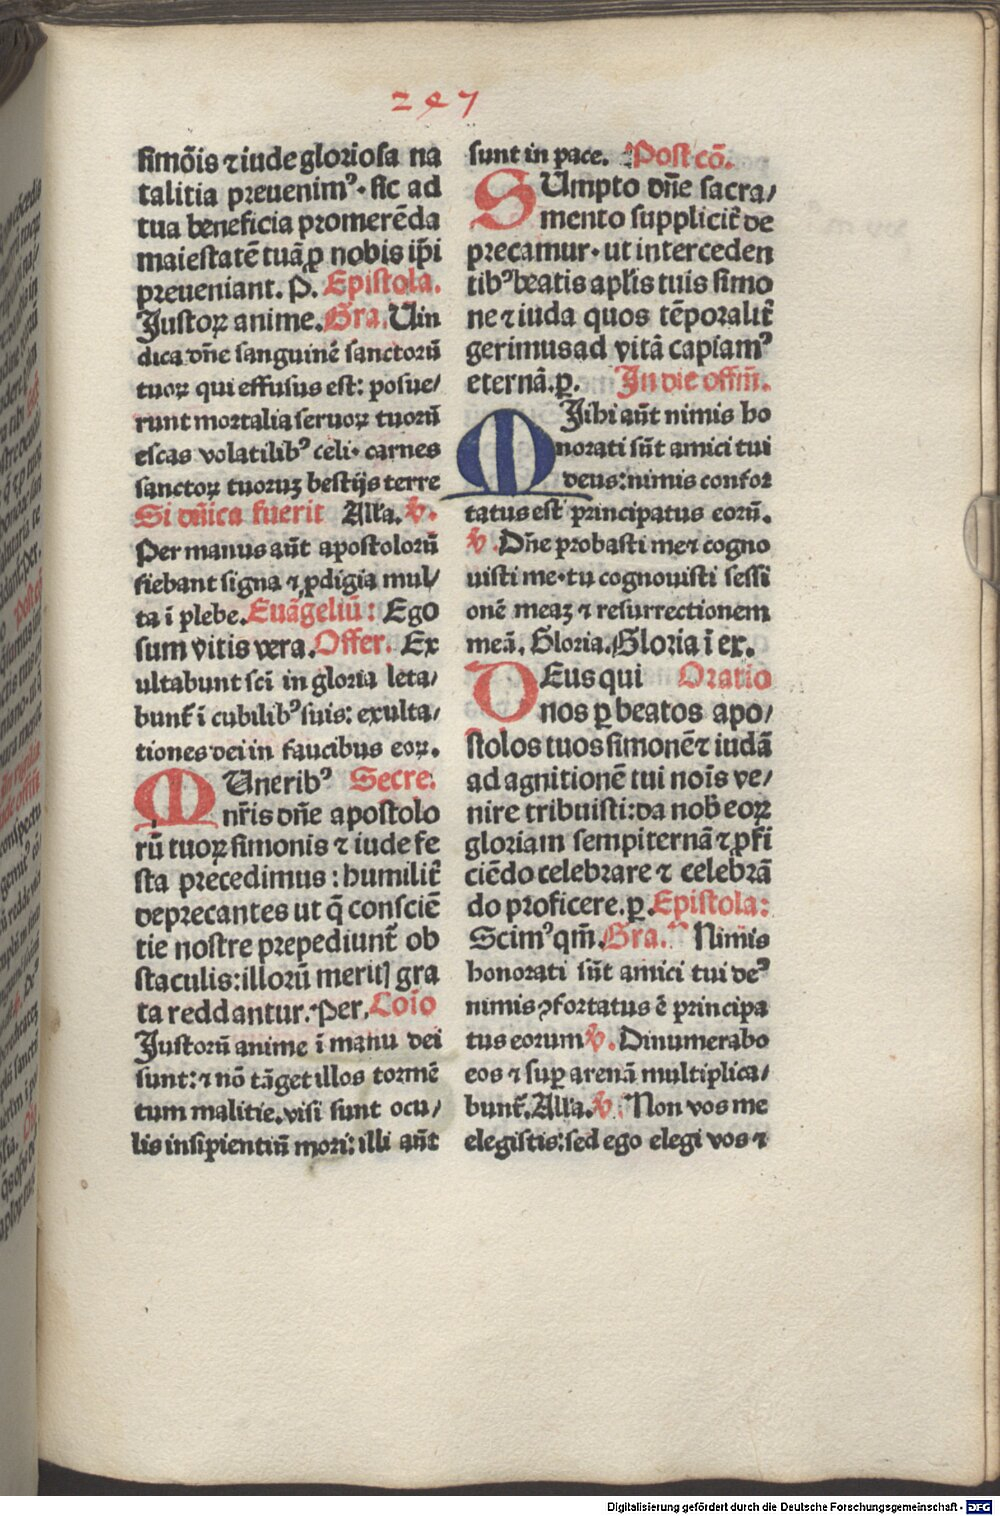 247
simōis ⁊ iude gloriosa na
talitia preuenimꝰ· sic ad
tua beneficia promerēda
maiestatē tuā ꝓ nobis ip̄i
preueniant. P. Epistola.
Justoꝝ anime. Gra. Uin
dica dn̄e sanguinē sanctorū
tuoꝝ qui effusus est: posue/
runt mortalia seruoꝝ tuorū
escas volatilibꝰ celi· carnes
sanctoꝝ tuoruꝫ bestijs terre
Si dn̄ica fuerit Alľa. ℣.
Per manus aūt apostolorū
fiebant signa ⁊ ꝓdigia mul/
ta ī plebe. Euāgeliū: Ego
sum vitis vera. Offer. Ex
ultabunt scī in gloria leta/
bunt̄ ī cubilibꝰ suis: exulta/
tiones dei in faucibus eoꝝ.
MUneribꝰ Secre.
nr̄is dn̄e apostolo
rū tuoꝝ simonis ⁊ iude fe
sta precedimus: humilit̄
deprecantes ut q̄ consciē
tie nostre prepediunt̄ ob
staculis: illorū meritꝭ gra
ta reddantur. Per. Cōio
Justorū anime ī manu dei
sunt: ⁊ nō tāget illos tormē
tum malitie. visi sunt ocu/
lis insipientiū mori: illi aūt
sunt in pace. Post cō.
SUmpto dn̄e sacra/
mento supplicit̄ de
precamur· ut interceden
tibꝰ beatis apľis tuis simo
ne ⁊ iuda quos tēporalit̄
gerimus ad vitā capiamꝰ
eternā. ꝑ. In die offm̄.
MIhi aūt nimis ho
norati sūt amici tui
deus: nimis confor
tatus est principatus eorū.
℣. Dn̄e probasti me ⁊ cogno
uisti me· tu cognouisti sessi
onē meaꝫ ⁊ resurrectionem
meā. Gloria. Gloria ī ex.
DEus qui Oratio
nos ꝑ beatos apo/
stolos tuos simonē ⁊ iudā
ad agnitionē tui noīs ve/
nire tribuisti: da nob̄ eoꝝ
gloriam sempiternā ⁊ ꝓfi
ciēdo celebrare ⁊ celebrā
do proficere. ꝑ. Epistola:
Scimꝰ qm̄. Gra. Nimis
honorati sūt amici tui deꝰ
nimis ꝯfortatus ē principa
tus eorum ℣. Dinumerabo
eos ⁊ suꝑ arenā multiplica/
bunt̄. Alľa. ℣. Non vos me
elegistis: sed ego elegi vos ⁊
Digitalisierung gefördert durch die Deutsche Forschungsgemeinschaft - DFG